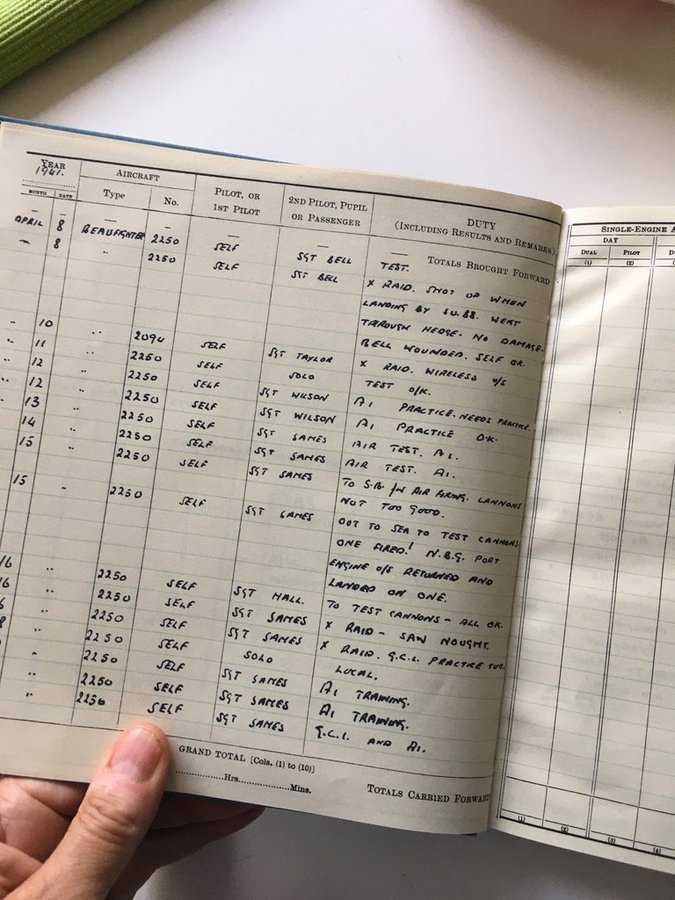 YEAR AIRCRAFT PILOT, OR 1ST PILOT 2ND PILOT, PUPIL OR PASSENGER DUTY (INCLUDING RESULTS AND REMARKS) SINGLE-ENGINE A
1941. DAY
MONTH DATE Type No. DUAL PILOT
(1) (2)
— — — — — — TOTALS BROUGHT FORWARD
APRIL 8 BEAUFIGHTER 2250 SELF SGT BELL TEST.
" 8 " 2250 SELF SGT BELL X RAID. SHOT UP WHEN
LANDING BY JU.88. WENT
THROUGH HEDGE. NO DAMAGE.
BELL WOUNDED. SELF OK.
" 10 " 2094 SELF SGT TAYLOR X RAID. WIRELESS U/S
" 11 " 2250 SELF SOLO TEST O/K.
" 12 " 2250 SELF SGT WILSON A1 PRACTICE. NEEDS PRACTICE.
" 12 " 2250 SELF SGT WILSON A1 PRACTICE OK.
" 13 " 2250 SELF SGT JAMES AIR TEST. A1.
" 14 " 2250 SELF SGT JAMES AIR TEST. A1.
" 15 " 2250 SELF SGT JAMES TO S.B. for AIR FIRING. CANNONS
NOT TOO GOOD.
15 " 2250 SELF SGT JAMES OUT TO SEA TO TEST CANNONS
ONE FIRED! N.B.G. PORT
ENGINE U/S RETURNED AND
LANDED ON ONE.
16 " 2250 SELF SGT HALL. TO TEST CANNONS - ALL OK.
16 " 2250 SELF SGT JAMES X RAID - SAW NOUGHT.
6 " 2250 SELF SGT JAMES X RAID. G.C.I. PRACTICE TOO.
8 " 2250 SELF SOLO LOCAL.
" 2250 SELF SGT JAMES A1 TRAINING.
" 2250 SELF SGT JAMES A1 TRAINING.
" 2250 SELF SGT JAMES G.C.I. AND A1.
GRAND TOTAL [Cols. (1) to (10)]
Hrs. Mins. TOTALS CARRIED FORWARD
(1) (2) (3) (4)